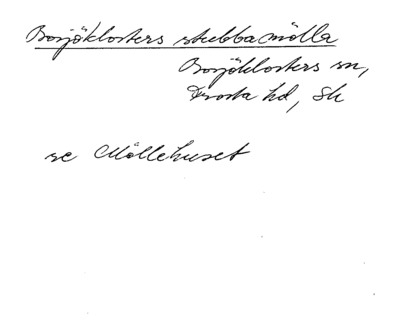 Bosjöklosters stubbamölla
Bosjöklosters sn,
Frosta hd, Sk
se Möllehuset